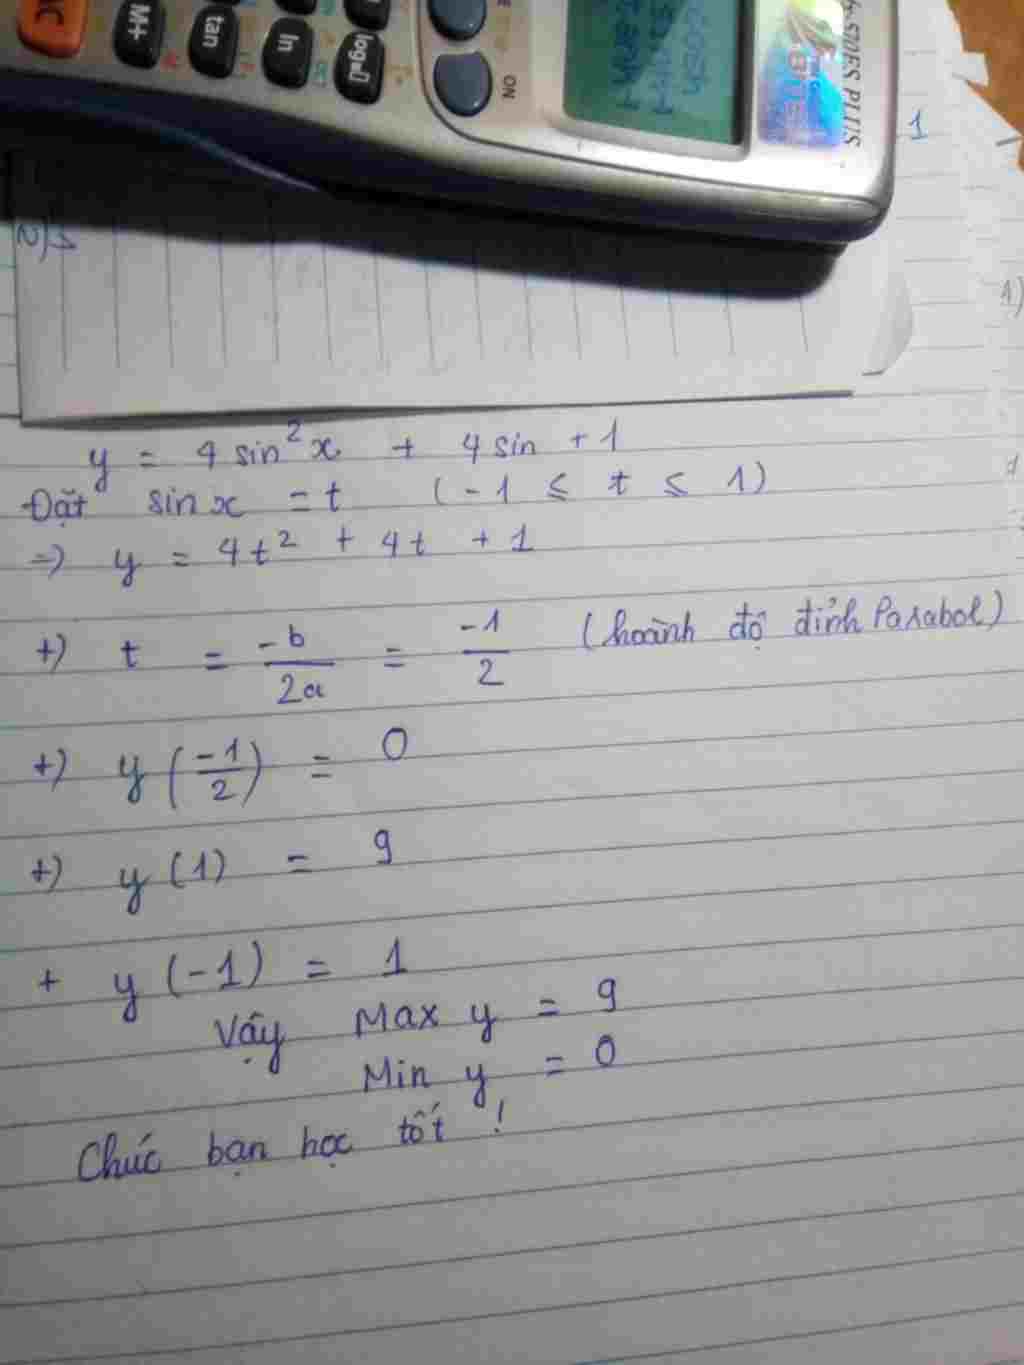 S PLUS
ON
M+
tan
ln
log
1
1)
y = 4 sin²x + 4 sin + 1
Đặt sin x = t (-1 ≤ t ≤ 1)
=> y = 4t² + 4t + 1
+) t = -b/2a = -1/2 (hoành độ đỉnh Parabol)
+) y(-1/2) = 0
+) y(1) = 9
+ y(-1) = 1
Vậy Max y = 9
Min y = 0
Chúc bạn học tốt !